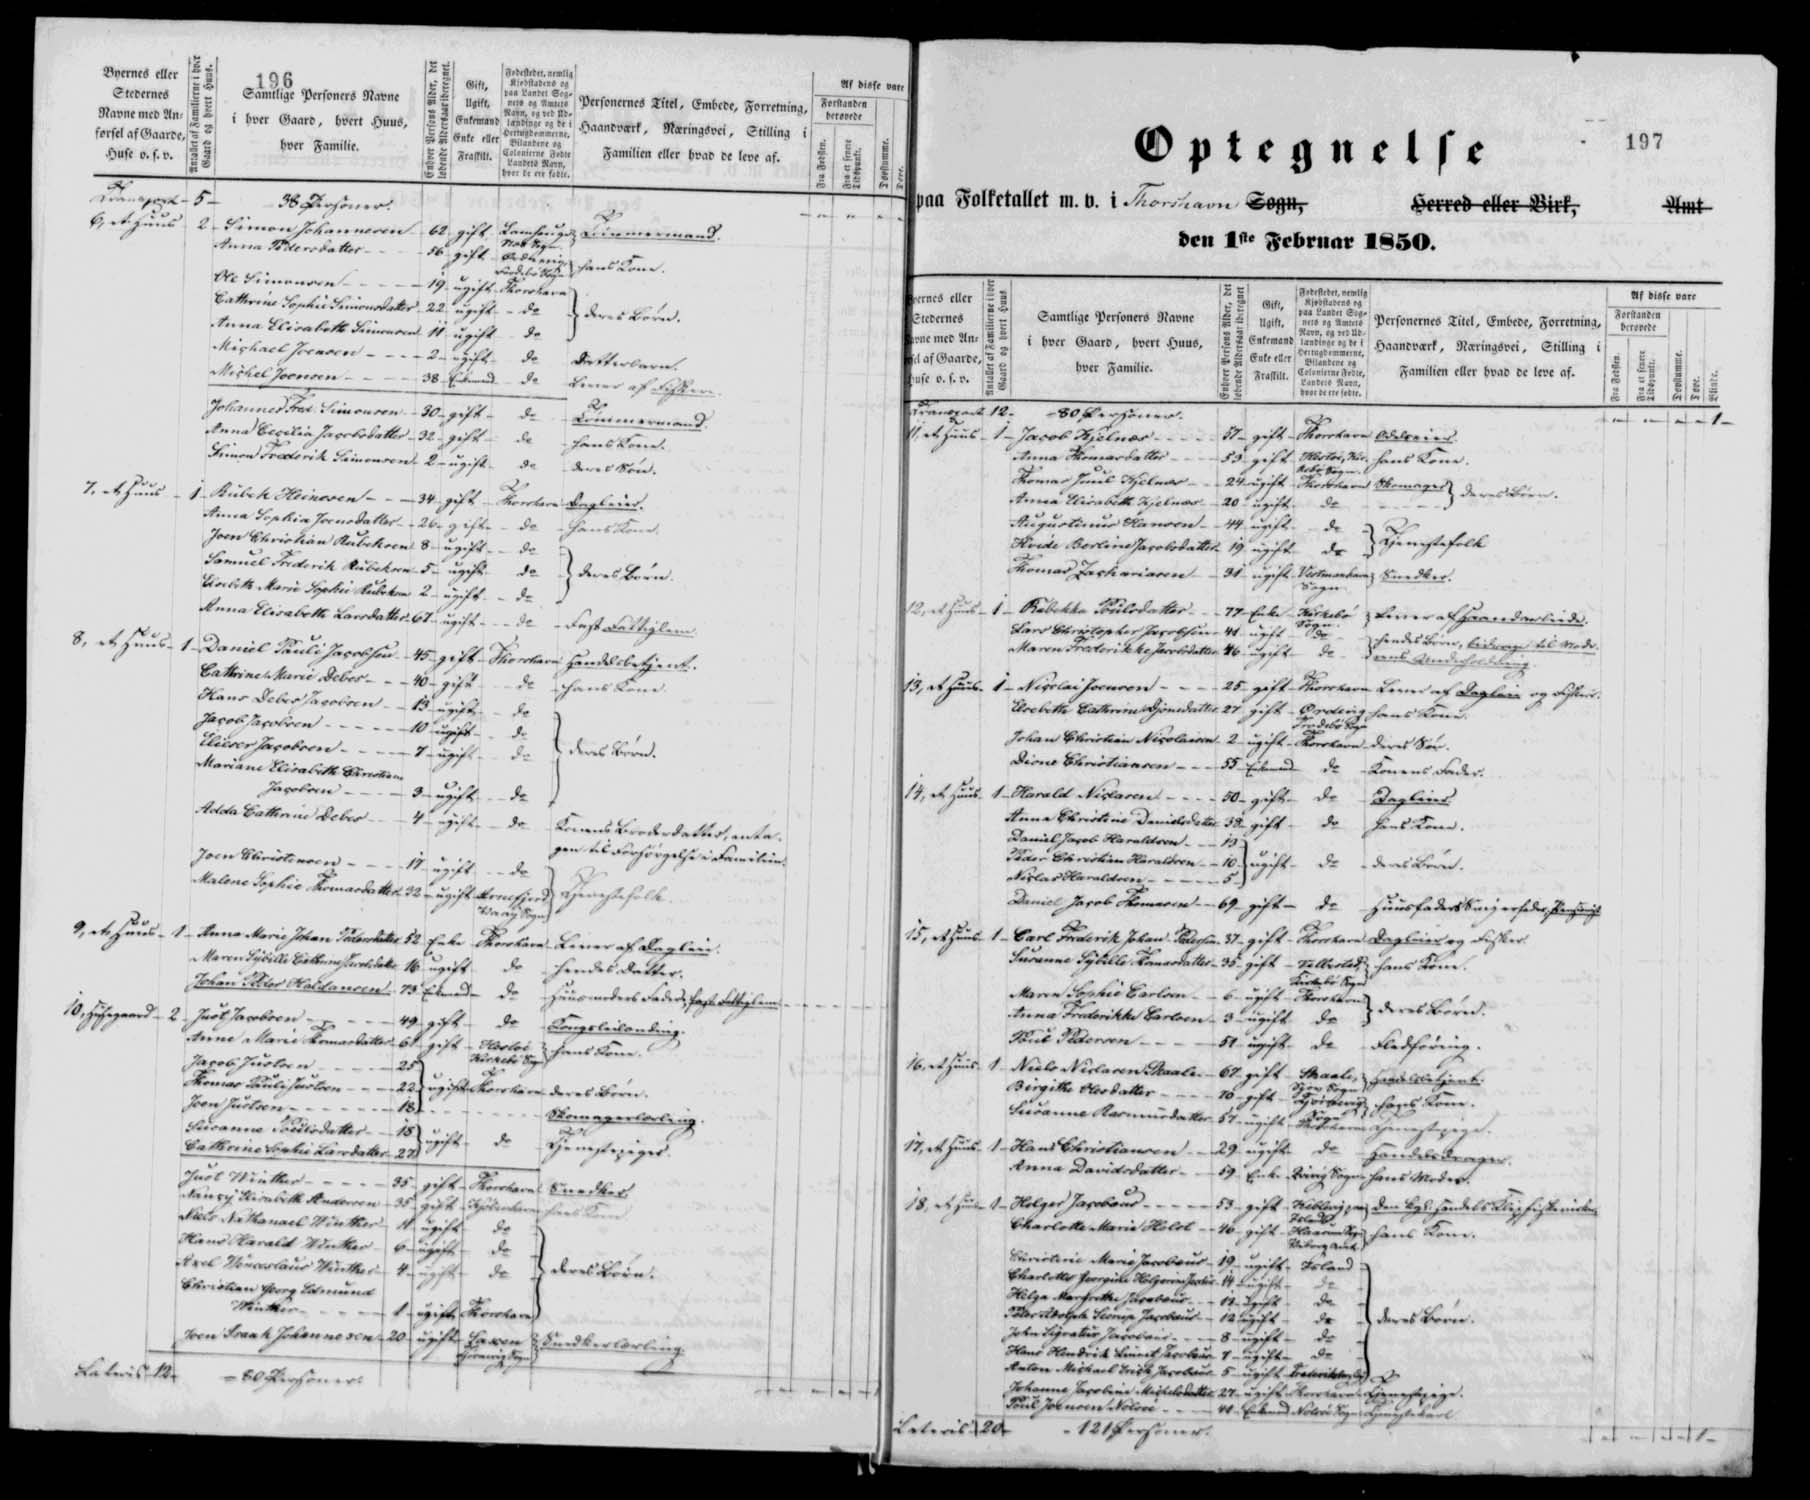 196
Byernes eller
Stedernes
Navne med An-
førsel af Gaarde,
Huse o. s. v.
Antallet af Familierne i hver
Gaard og hvert Huus.
Samtlige Personers Navne
i hver Gaard, hvert Huus,
hver Familie.
Enhver Persons Alder, det
løbende Aldersaar iberegnet.
Gift,
Ugift,
Enkemand
Enke eller
Fraskilt.
Fødestedet, nemlig
Kjøbstadens og
paa Landet Sog-
nets og Amtets
Navn, og ved Ud-
lændinge og de i
Hertugdømmerne,
Bilandene og
Colonierne Fødte
Landets Navn,
hvor de ere fødte.
Personernes Titel, Embede, Forretning,
Haandværk, Næringsvei, Stilling i
Familien eller hvad de leve af.
Af disse vare
Forstanden
berøvede
Fra Fødslen.
Fra et senere
Tidspunkt.
Døvstumme.
Døve.
Transport 5 - 38 Personer.
6, et Huus - 2 - Simon Johannesen - 62 - gift - Tømmermand.
Anna Pedersdatter - 56 - gift - hans Kone.
Ole Simonsen - 19 - ugift - Thorshavn
Cathrine Sophie Simonsdatter - 22 - ugift - do } deres Børn.
Anna Elisabeth Simonsen - 11 - ugift - do
Michael Joensen - 2 - ugift - do Datterbarn.
Michel Joensen - 38 - Enkemand - do Lever af Fiskeri.
Johannes Fred. Simonsen - 30 - gift - do Tømmermand.
Anna Cecilia Jacobsdatter - 32 - gift - do hans Kone.
Simon Frederik Simonsen - 2 - ugift - do deres Søn.
7, et Huus - 1 - Rubek Heinesen - 34 - gift - Thorshavn Dagleier.
Anna Sophia Joensdatter - 26 - gift - do hans Kone.
Joen Christian Rubeksen 8 - ugift - do
Samuel Frederik Rubeksen - 5 - ugift - do } deres Børn.
Elsebeth Marie Sophie Rubeksen 2 - ugift - do
Anna Elisabeth Larsdatter - 67 - ugift - do - Fast Fattiglem.
8, et Huus - 1 - Daniel Pauli Jacobsen - 45 - gift - Thorshavn Handelsbetjent.
Cathrine Marie Debes - 40 - gift - do - hans Kone.
Hans Debes Jacobsen - 13 - ugift - do
Jacob Jacobsen - 10 - ugift - do
Elieser Jacobsen - 7 - ugift - do } deres Børn.
Mariane Elisabeth Christiane
Jacobsen - 3 - ugift - do
Adda Cathrine Debes - 4 - ugift - do Konens Broderdatter, anta-
gen til Forsørgelse i Familien.
Joen Christensen - 17 - ugift - do
Malene Sophie Thomasdatter 32 - ugift Arnefjord } Tjenestefolk.
Vaag Sogn
9, et Huus - 1 - Anna Marie Johan Pedersdatter 52 Enke Thorshavn Lever af Dagleie.
Maren Sybille Cathrine Jacobsdatter 16 ugift do hendes Datter.
Johan Peter Haldansen - 73 Enkemand - do Huusmoders Fader, fast Fattiglem
10, - 2 - Just Jacobsen - 49 - gift - do Kongsleilænding.
Anne Marie Thomasdatter - gift - Hestøe hans Kone.
Kirkebø Sogn
Jacob Justsen - 25
Thomas Pauli Justsen - 22 } ugift Thorshavn deres Børn.
Joen Justsen - 18 Skomagerlærling.
Susanne Poulsdatter - 18
Cathrine Sophie Larsdatter - 27 } ugift - do Tjenestepiger.
Just Winther - 35 - gift - Thorshavn Snedker
Nancy Elisabeth Andersen - 35 - gift - Kjøbenhavn hans Kone
Niels Nathanael Winther - 11 ugift - do
Hans Harald Winther - 6 - ugift - do
Axel Wenceslaus Winther - 4 - ugift - do } deres Børn.
Christian Georg Edmund
Winther - 1 - ugift Thorshavn
Joen Isaak Johannesen - 20 - ugift - Snedkerlærling.
Lateris 12 - 80 Personer.
197
Optegnelse
paa Folketallet m. v. i Thorshavn Sogn, Herred eller Birk, Amt
den 1ste Februar 1850.
Byernes eller
Stedernes
Navne med An-
førsel af Gaarde,
Huse o. s. v.
Antallet af Familierne i hver
Gaard og hvert Huus.
Samtlige Personers Navne
i hver Gaard, hvert Huus,
hver Familie.
Enhver Persons Alder, det
løbende Aldersaar iberegnet
Gift,
Ugift,
Enkemand
Enke eller
Fraskilt.
Fødestedet, nemlig
Kjøbstadens og
paa Landet Sog-
nets og Amtets
Navn, og ved Ud-
lændinge og de i
Hertugdømmerne,
Bilandene og
Colonierne Fødte,
Landets Navn,
hvor de ere fødte.
Personernes Titel, Embede, Forretning,
Haandværk, Næringsvei, Stilling i
Familien eller hvad de leve af.
Af disse vare
Forstanden
berøvede
Fra Fødslen.
Fra et senere
Tidspunkt.
Døvstumme.
Døve.
Blinde.
Transport 12 - 80 Personer. 1
11, et Huus - 1 - Jacob Kjelnæs - 57 - gift - Thorshavn Odelseier.
Anna Thomasdatter - 53 - gift Hestøe, Kir- hans Kone.
kebø Sogn
Thomas Juul Kjelnæs - 24 - ugift - Thorshavn Skomager } deres Børn.
Anna Elisabeth Kjelnæs - 20 - ugift - do
Augustinus Hansen - 44 - ugift - do
Hvide Berline Jacobsdatter 19 ugift do } Tjenestefolk
Thomas Zachariasen - 31 - ugift Vestmanhavn Snedker.
Sogn
12, et Huus - 1 - Rebekka Poulsdatter - 77 - Enke - Kirkebø Lever af Haandarbeide.
Sogn
Lars Christopher Jacobsen - 41 - ugift - do } hendes Børn, bidrage til Mode-
Maren Frederikke Jacobsdatter 46 - ugift - do rens Underholdning
13, et Huus - 1 - Nicolai Joensen - 25 - gift - Thorshavn Lever af Dagleie og Fiskeri.
Elsebeth Cathrine Djonesdatter 27 gift - Ørdevig hans Kone.
Johan Christian Nicolaisen - 2 - ugift - Thorshavn deres Søn.
Dione Christiansen - 55 - Enkemand do Konens Fader.
14, et Huus - 1 - Harald Niclasen - 50 - gift - do Dagleier
Anna Christine Danielsdatter 38 - gift - do hans Kone.
Daniel Jacob Haraldsen - 13
Peder Christian Haraldsen - 10 } ugift - do - deres Børn.
Niclas Haraldsen - 5
Daniel Jacob Thomasen - 69 - gift - do Huusfaders Svigerfader,
15, et Huus - 1 - Carl Frederik Johan Pedersen 37 - gift - Thorshavn Dagleier og Fisker.
Susanne Sybille Thomasdatter - 35 - gift - Velbestad, hans Kone.
Kirkebø Sogn
Maren Sophie Carlsen - 6 - ugift - Thorshavn
Anna Frederikke Carlsen - 3 - ugift do } deres Børn.
Poul Pedersen - 51 - ugift - do Fledføring.
16, et Huus 1 - Niels Niclasen Skaale - 67 gift - Skaale, Handelsbetjent.
Birgithe Olesdatter - 70 - gift - hans Kone.
Susanne Rasmusdatter - 57 - ugift - Thorshavn Tjenestepige.
17, et Huus - 1 - Hans Christiansen - 29 ugift - do Handelsdrager.
Anna Davidsdatter - 59 Enke - Sogn hans Moder.
18, et Huus - 1 - Holger Jacobæus - 53 - gift -
Charlotte Marie Holst - 40 - gift - hans Kone.
Christine Marie Jacobæus - 19 - ugift - Island
Charlotte Georgine Jacobæus - 14 - ugift - do
Helga Margrethe Jacobæus - ugift - do
Peter Adolph Jacobæus - 12 ugift - do } deres Børn.
John Jacobæus - 8 - ugift - do
Hans Hendrik Jacobæus - 7 - ugift - do
Anton Michael Jacobæus - 5 - ugift
Johanne Jacobine Michelsdatter 27 - ugift Thorshavn Tjenestepige.
Poul Joensen Nolsøe - 41 - Enkemand Nolsøe Sogn Tjenestekarl
Lateris 20 - 121 Personer. 1